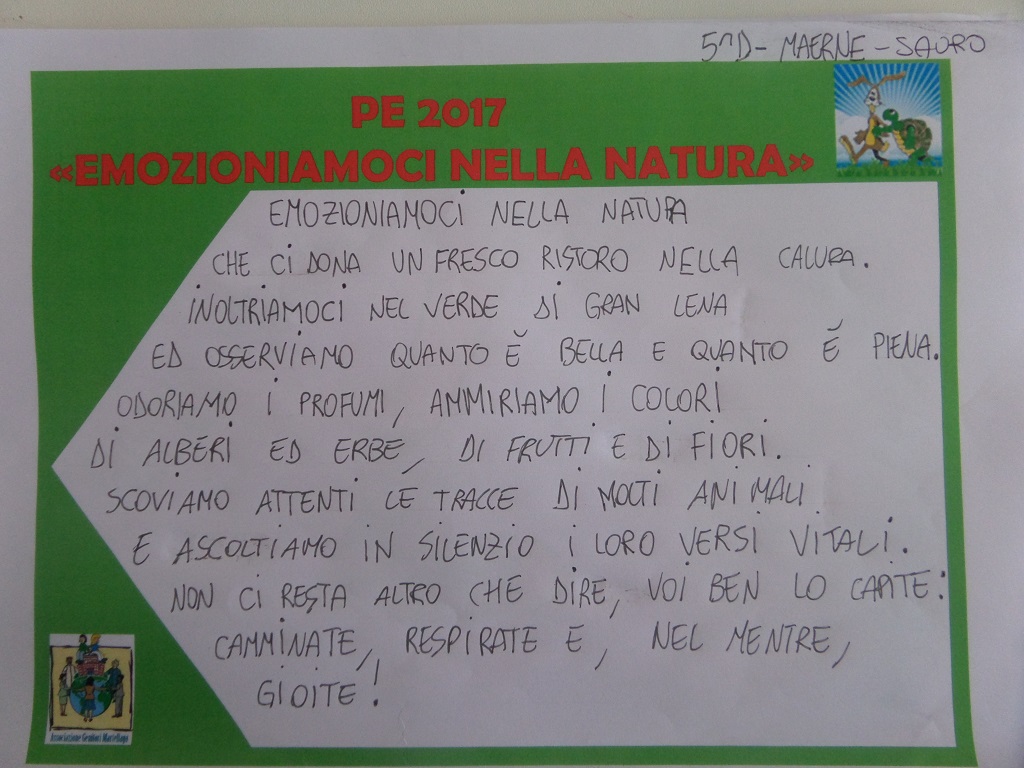 5^D - MAERNE - SAURO
PE 2017
«EMOZIONIAMOCI NELLA NATURA»
EMOZIONIAMOCI NELLA NATURA
CHE CI DONA UN FRESCO RISTORO NELLA CALURA.
INOLTRIAMOCI NEL VERDE DI GRAN LENA
ED OSSERVIAMO QUANTO È BELLA E QUANTO È PIENA.
ODORIAMO I PROFUMI, AMMIRIAMO I COLORI
DI ALBERI ED ERBE, DI FRUTTI E DI FIORI.
SCOVIAMO ATTENTI LE TRACCE DI MOLTI ANIMALI
E ASCOLTIAMO IN SILENZIO I LORO VERSI VITALI.
NON CI RESTA ALTRO CHE DIRE, VOI BEN LO CAPITE:
CAMMINATE, RESPIRATE E, NEL MENTRE,
GIOITE!
Associazione Genitori Martellago